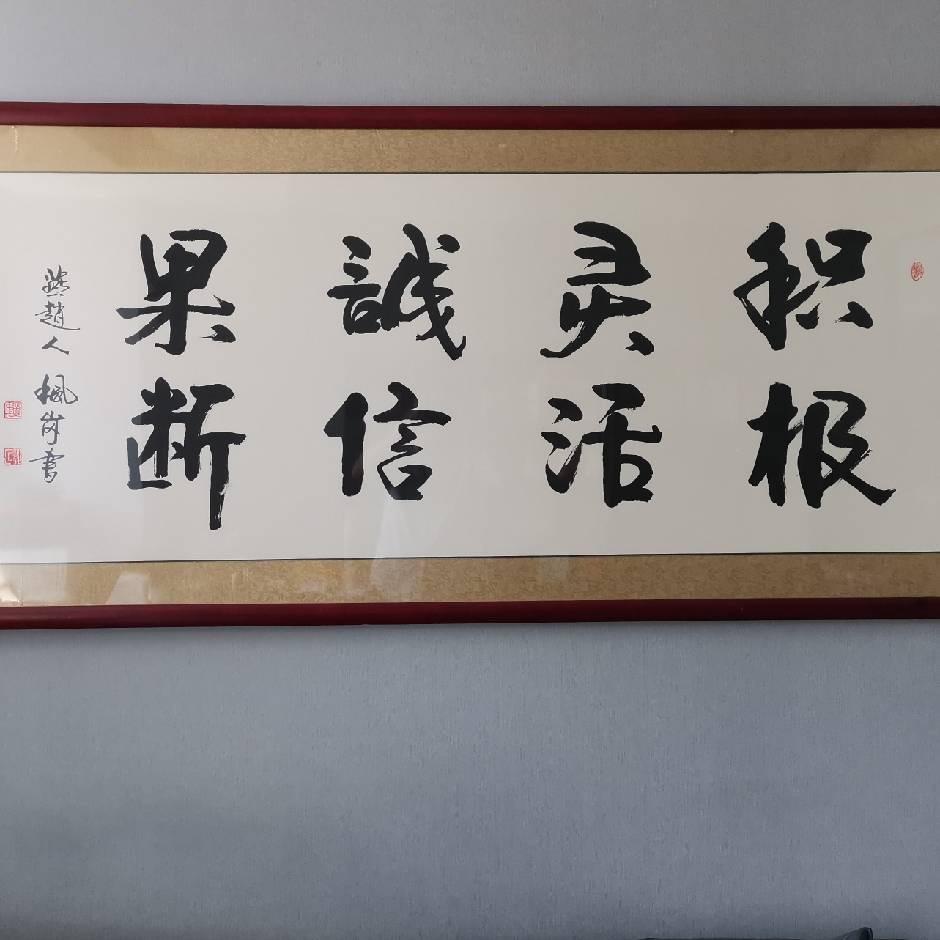 积极
灵活
誠信
果断
燕趙人 楓岗書